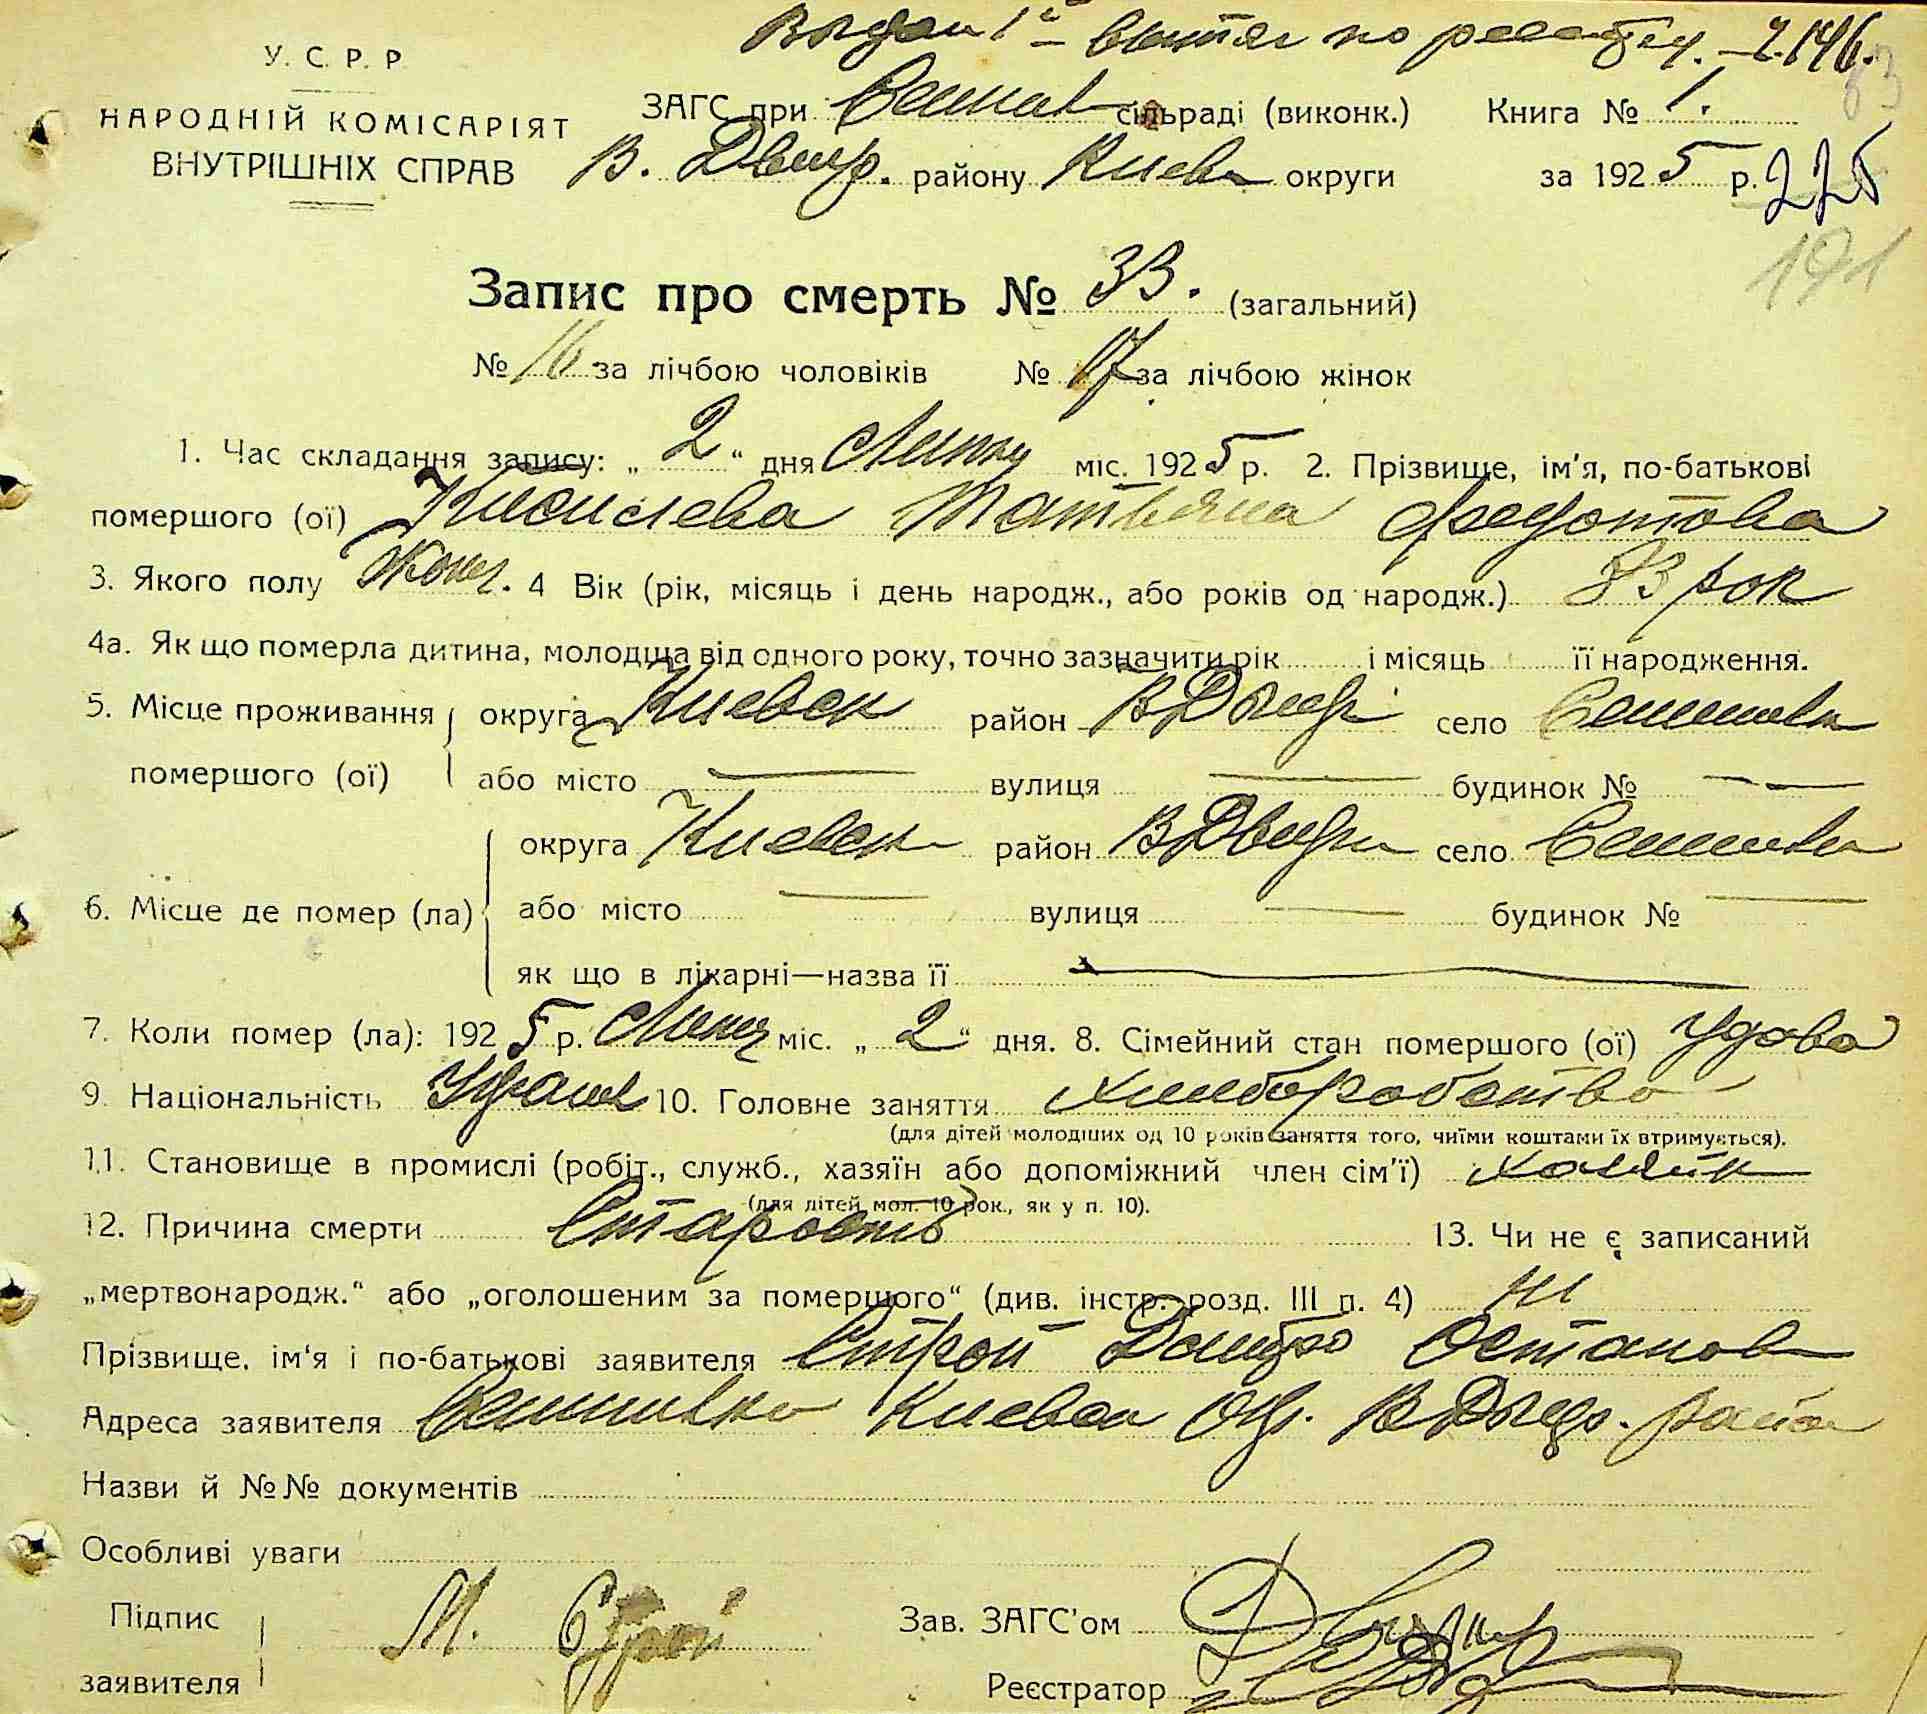 У. С. Р. Р.
НАРОДНІЙ КОМІСАРІЯТ
ВНУТРІШНІХ СПРАВ
по 2.146.
ЗАГС при сільраді (виконк.) Книга № 1.
В. району Києв округи за 1925 р. 225
191
Запис про смерть № 33. (загальний)
№ 16 за лічбою чоловіків № 17 за лічбою жінок
1. Час складання запису: „2“ дня Липня міс. 1925 р. 2. Прізвище, ім'я, по-батькові
помершого (ої) Киселева Татьяна Федотова
3. Якого полу Жоноч. 4 Вік (рік, місяць і день народж., або років од народж.) 83 рок
4а. Як що померла дитина, молодща від одного року, точно зазначити рік і місяць її народження.
5. Місце проживання округа Киевск район ВДымер село
помершого (ої) або місто — вулиця — будинок № —
округа Киевск район село
6. Місце де помер (ла) або місто — вулиця — будинок № —
як що в лікарні—назва її —
7. Коли помер (ла): 1925 р. Липня міс. „2“ дня. 8. Сімейний стан помершого (ої) Удова
9. Національність 10. Головне заняття хлиборобство
(для дітей молодших од 10 років заняття того, чиїми коштами їх втримується).
11. Становище в промислі (робіт., служб., хазяїн або допоміжний член сім'ї) хазяїн
(для дітей мол. 10 рок., як у п. 10).
12. Причина смерти Старость 13. Чи не є записаний
„мертвонародж.“ або „оголошеним за помершого“ (див. інстр. розд. III п. 4) ні
Прізвище, ім'я і по-батькові заявителя Строй Остапов
Адреса заявителя Киевск Окр. район
Назви й №№ документів
Особливі уваги
Підпис М. Строй Зав. ЗАГС'ом
заявителя Реєстратор